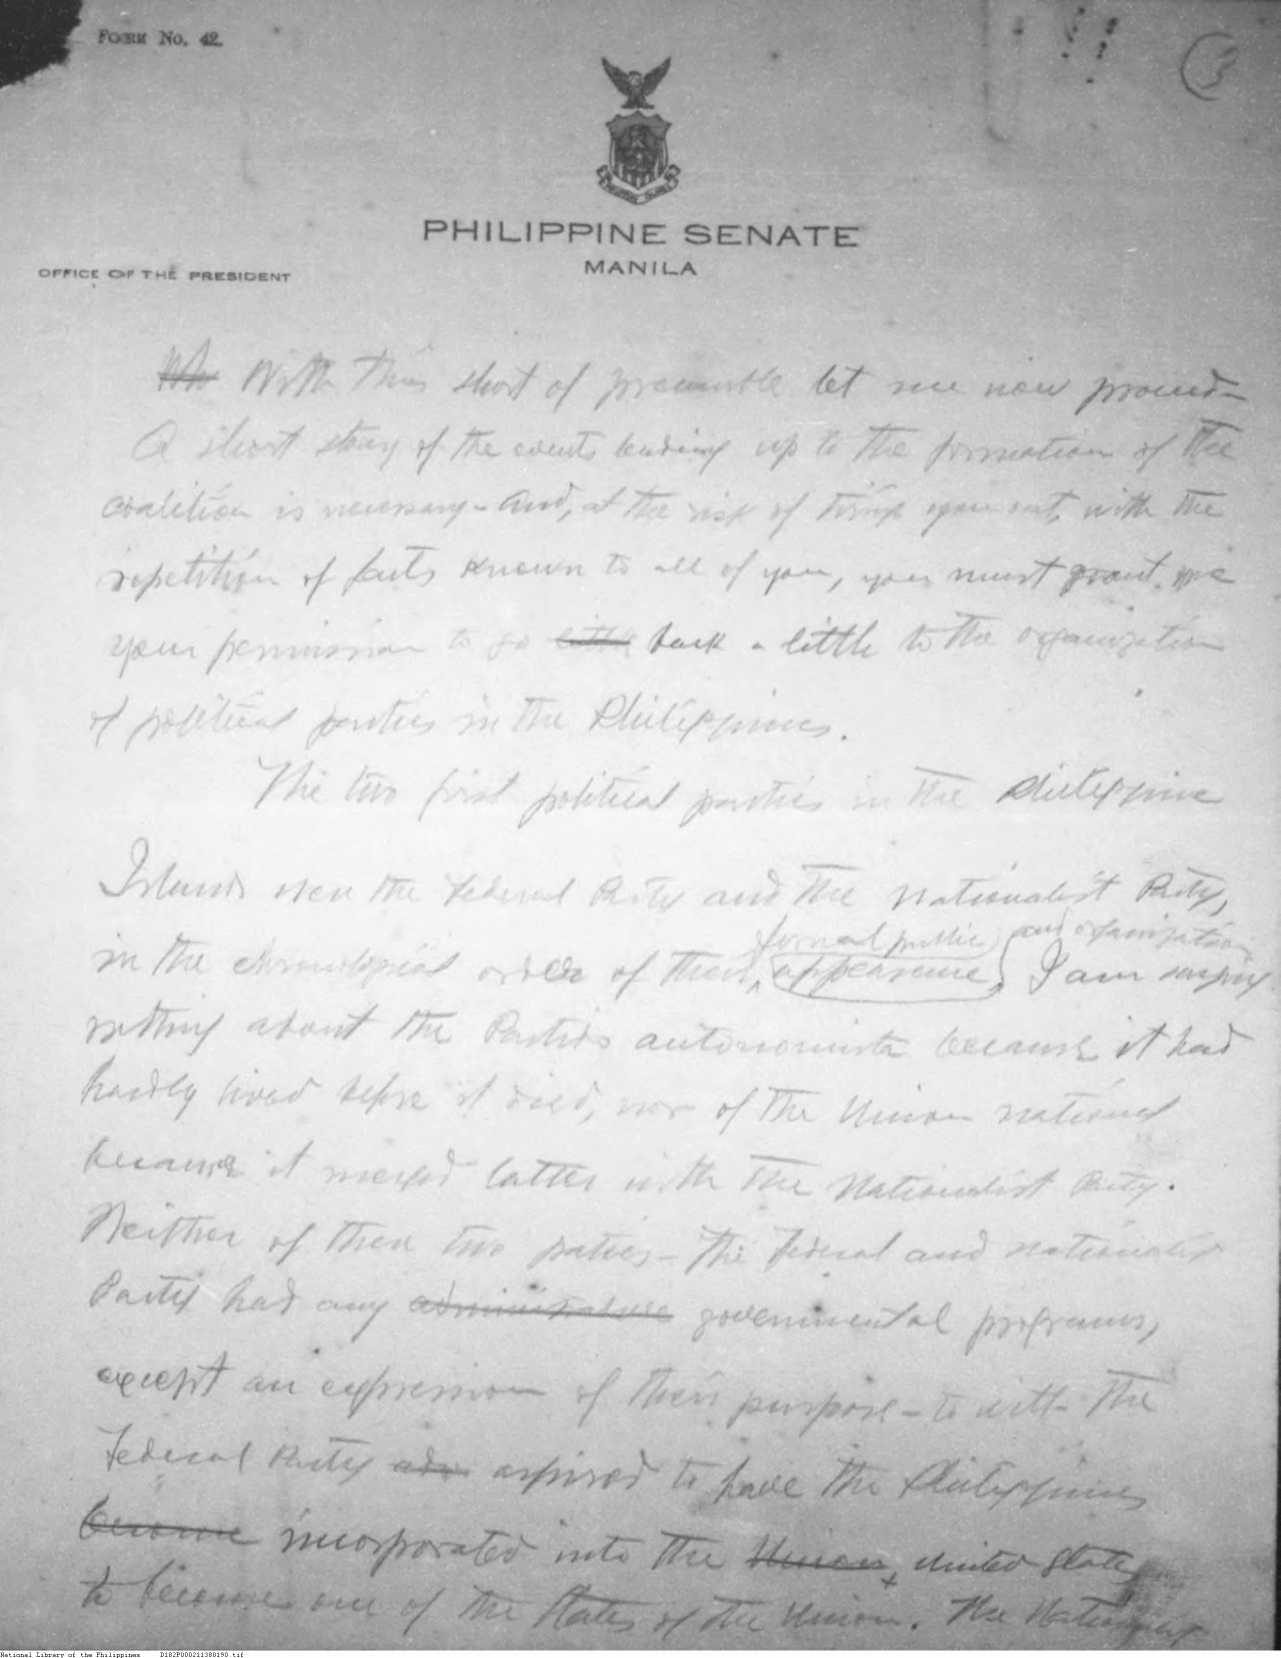 FORM No. 42.
3
PHILIPPINE SENATE
MANILA
OFFICE OF THE PRESIDENT
With this short of preamble let me now proceed-
A short story of the events leading up to the formation of the
coalition is necessary- And, at the risk of tiring you out, with the
repetition of facts known to all of you, you must grant me
your permission to go little back a little to the organization
of political parties in the Philippines.
The two first political parties in the Philippine
Islands were the Federal Party and the Nationalist Party,
formal public and organization
in the chronological order of their appearance, I am saying
nothing about the Partido autonomista because it had
hardly lived before it died, nor of the Union nacional
because it merged latter with the Nationalist Party.
Neither of these two parties- the Federal and nationalist
Party had any administrative governmental programs,
except an expression of their purpose- to with the
Federal Party adv aspired to have the Philippines
become incorporated into the Union, United States
to become one of the States of the Union. The Nationalist
National Library of the Philippines D182P000211380190.tif